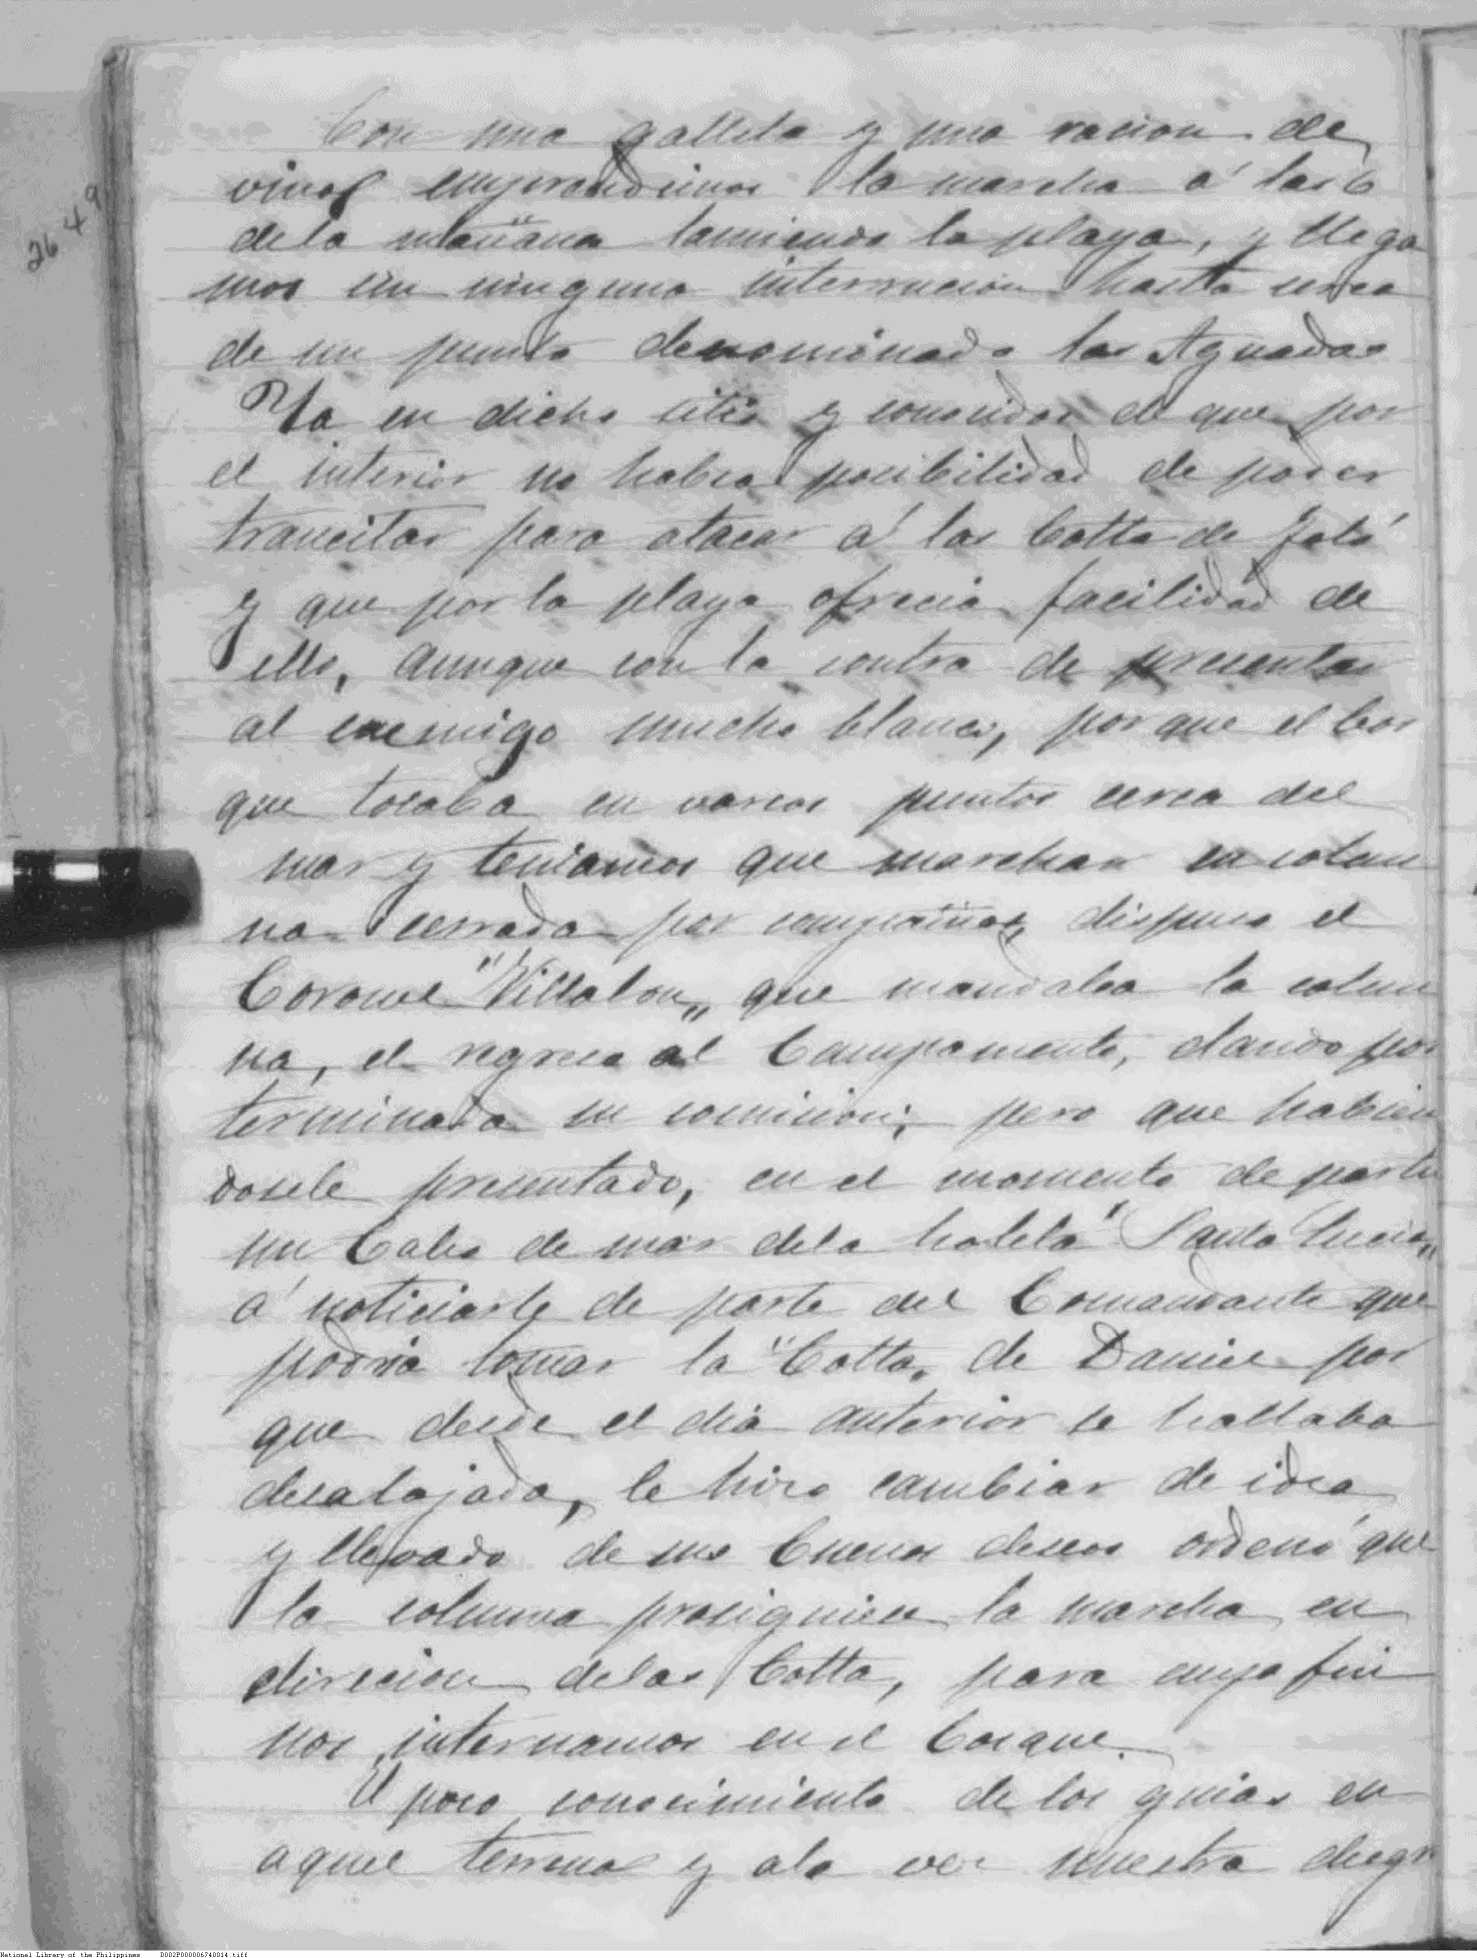 2649
Con una galleta y una racion de
vino emprendimos la marcha á las 6
de la mañana lamiendo la playa, y llega
mos sin ninguna interrucion hasta cerca
de un punto denominado las Aguadas
Ya en dicho sitio y conocidos de que por
el interior no habia posibilidad de poder
trancitar para atacar á las Cotta de Joló
y que por la playa ofrecia facilidad de
ello, aunque con la contra de presentar
al enemigo mucho blanco, porque el bos
que tocaba en varios puntos cerca del
mar y teniamos que marchar en colum
na cerrada por compañias, dispuso el
Coronel "Villalon" que mandaba la colum
na, el regreso al Campamento, dando por
terminada su comicion; pero que habien
dosele presentado, en el momento de partir
un Cabo de mar dela "Santa Lucia"
á noticiarle de parte del Comandante que
podria tomar la "Cotta" de Daniel por
que desde el dia anterior se hallaba
desalojada, le hizo cambiar de idea
y llevado de sus buenos deseos ordenó que
la columna prosiguiese la marcha en
direcion delas Cotta, para cuyo fin
nos internamos en el bosque.
El poco conocimiento de los guias en
aquel terreno y ala vez nuestra desgr
National Library of the Philippines D002P000006740014.tiff